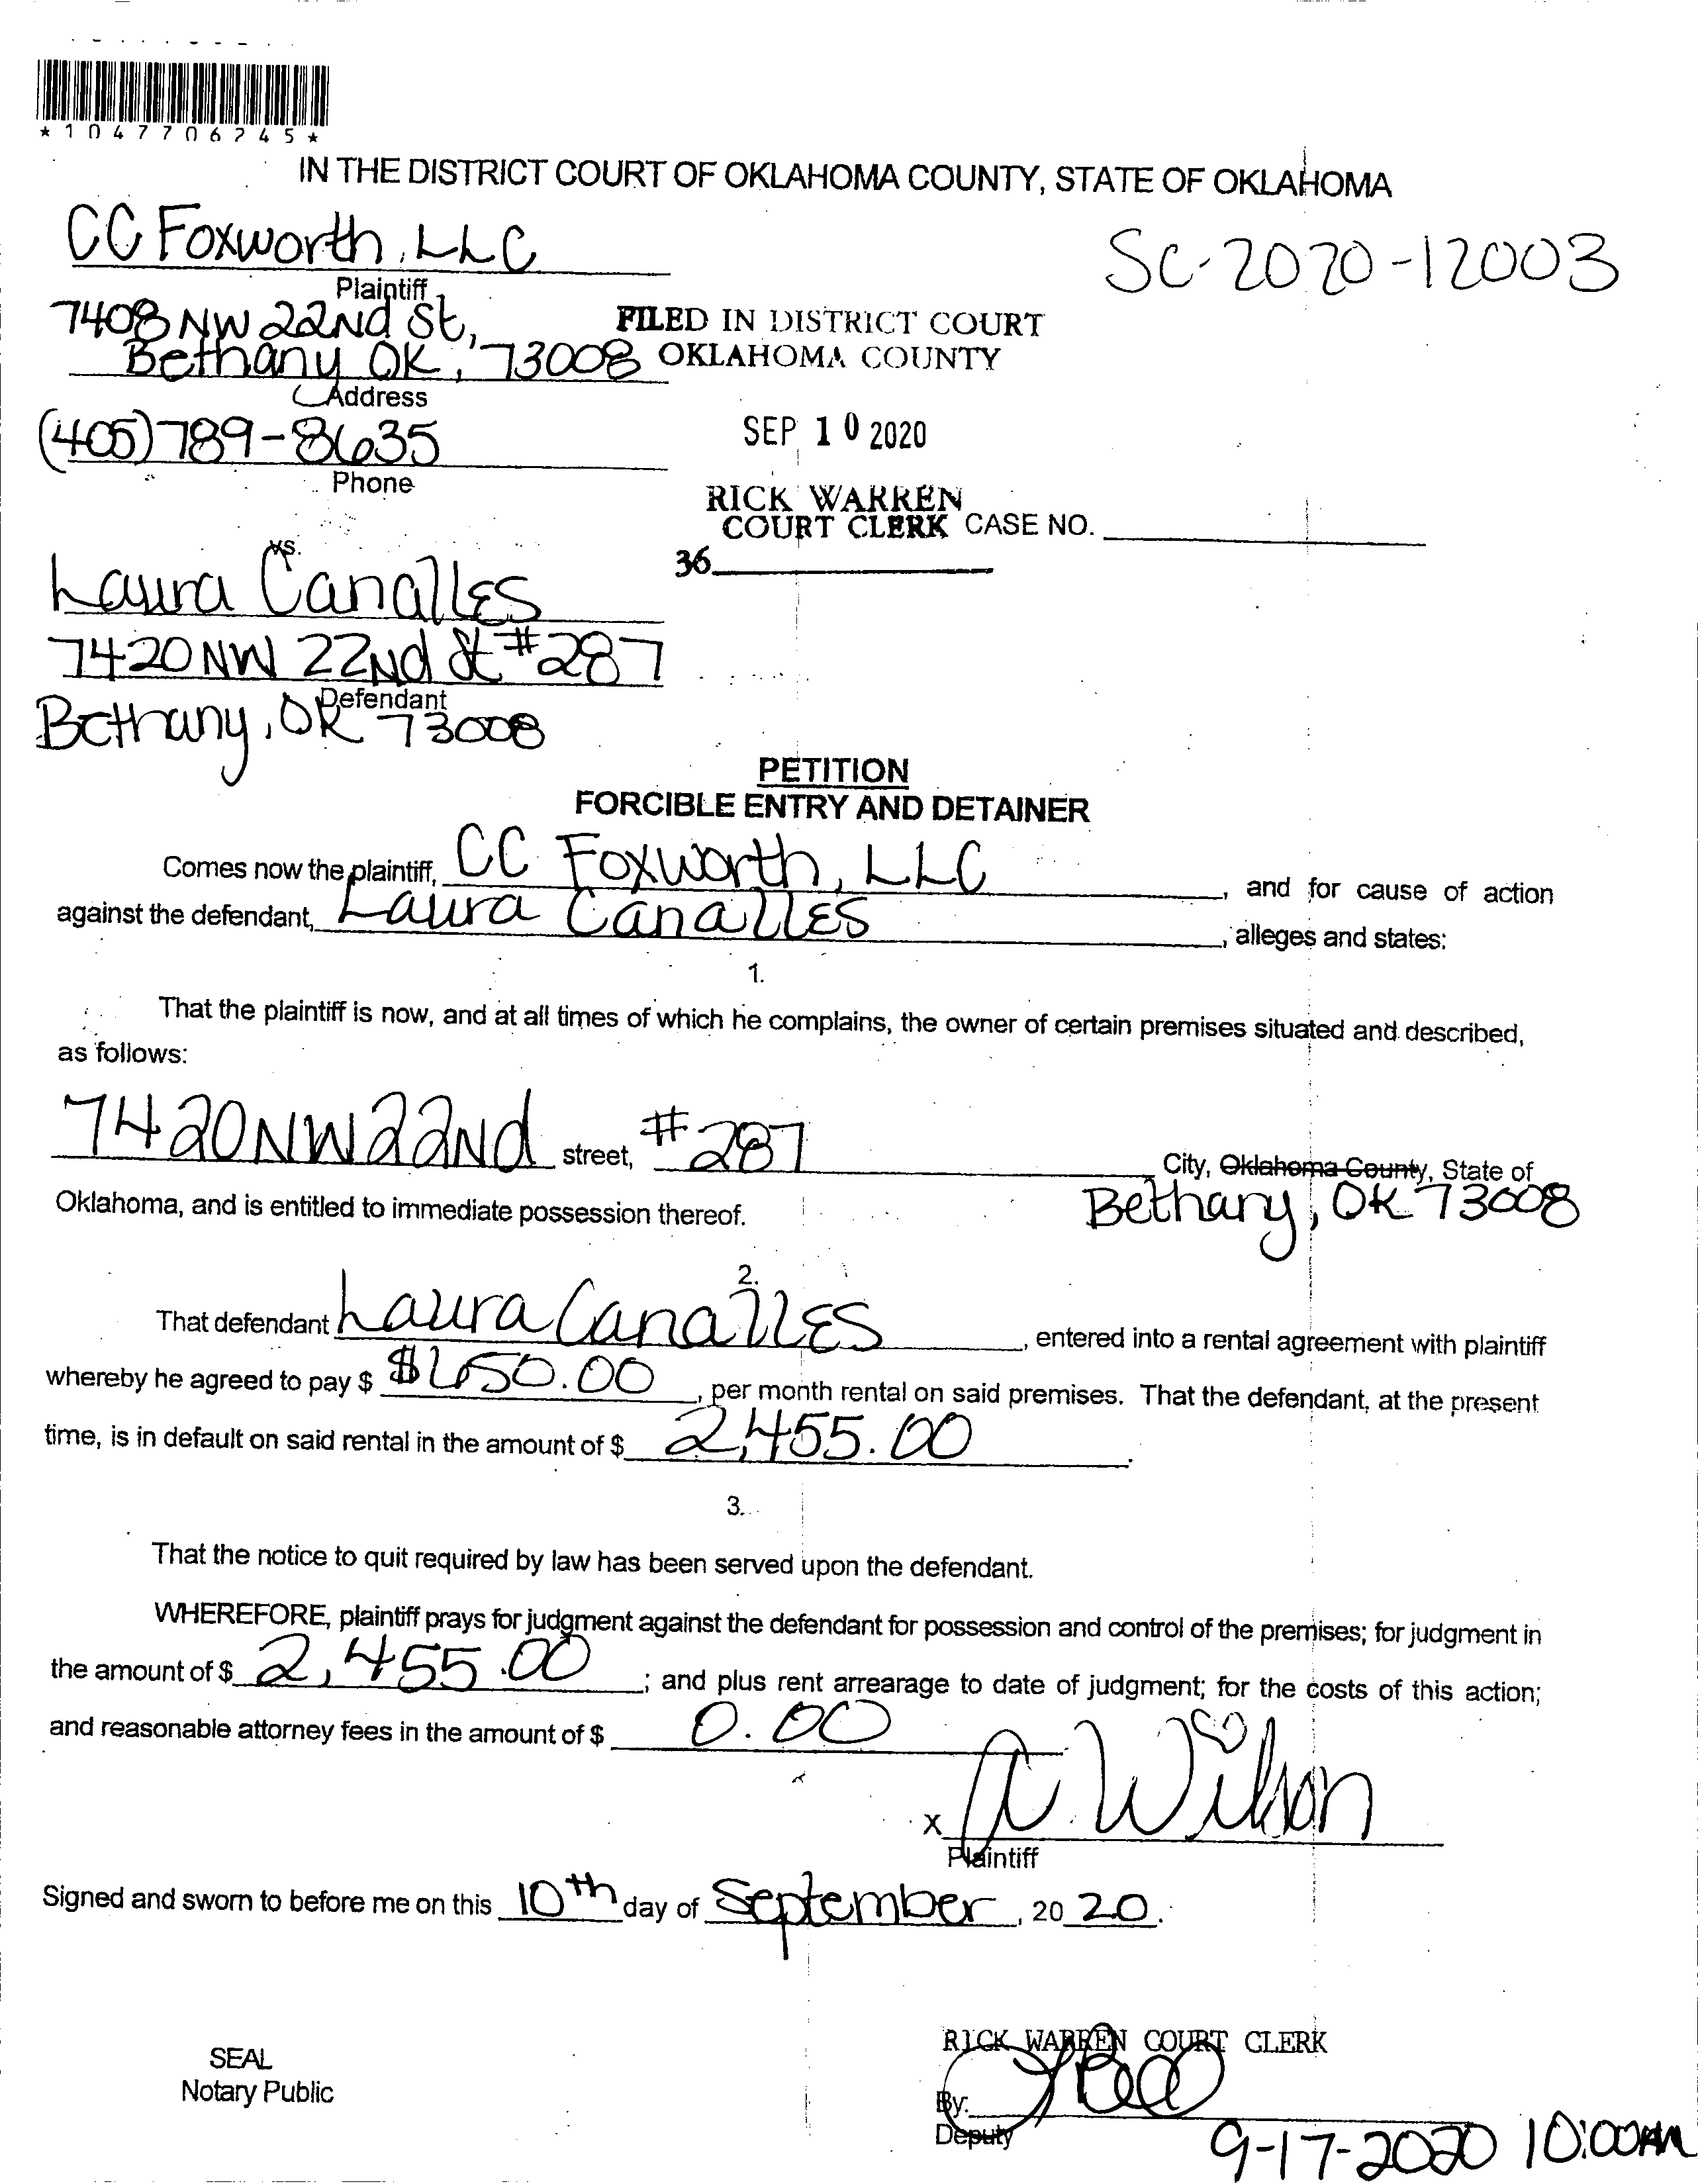 *1047706245*
IN THE DISTRICT COURT OF OKLAHOMA COUNTY, STATE OF OKLAHOMA
CC Foxworth, LLC
Plaintiff
SC-2020-12003
7408 NW 22nd St,
Bethany OK, 73008
Address
FILED IN DISTRICT COURT
OKLAHOMA COUNTY
(405) 789-8635
Phone
SEP 10 2020
RICK WARREN
COURT CLERK CASE NO.
36
vs.
Laura Canalles
7420 NW 22nd St #287
Defendant
Bethany, OK 73008
PETITION
FORCIBLE ENTRY AND DETAINER
Comes now the plaintiff, CC Foxworth, LLC, and for cause of action
against the defendant, Laura Canalles, alleges and states:
1.
That the plaintiff is now, and at all times of which he complains, the owner of certain premises situated and described,
as follows:
7420 NW 22nd street, #287 City, Oklahoma County, State of
Bethany, OK 73008
Oklahoma, and is entitled to immediate possession thereof.
2.
That defendant Laura Canalles, entered into a rental agreement with plaintiff
whereby he agreed to pay $ $650.00, per month rental on said premises. That the defendant, at the present
time, is in default on said rental in the amount of $ 2,455.00.
3.
That the notice to quit required by law has been served upon the defendant.
WHEREFORE, plaintiff prays for judgment against the defendant for possession and control of the premises; for judgment in
the amount of $ 2,455.00; and plus rent arrearage to date of judgment; for the costs of this action;
and reasonable attorney fees in the amount of $ 0.00
x A. Wilson
Plaintiff
Signed and sworn to before me on this 10th day of September, 2020.
SEAL
Notary Public
RICK WARREN COURT CLERK
By:
Deputy
9-17-2020 10:00AM